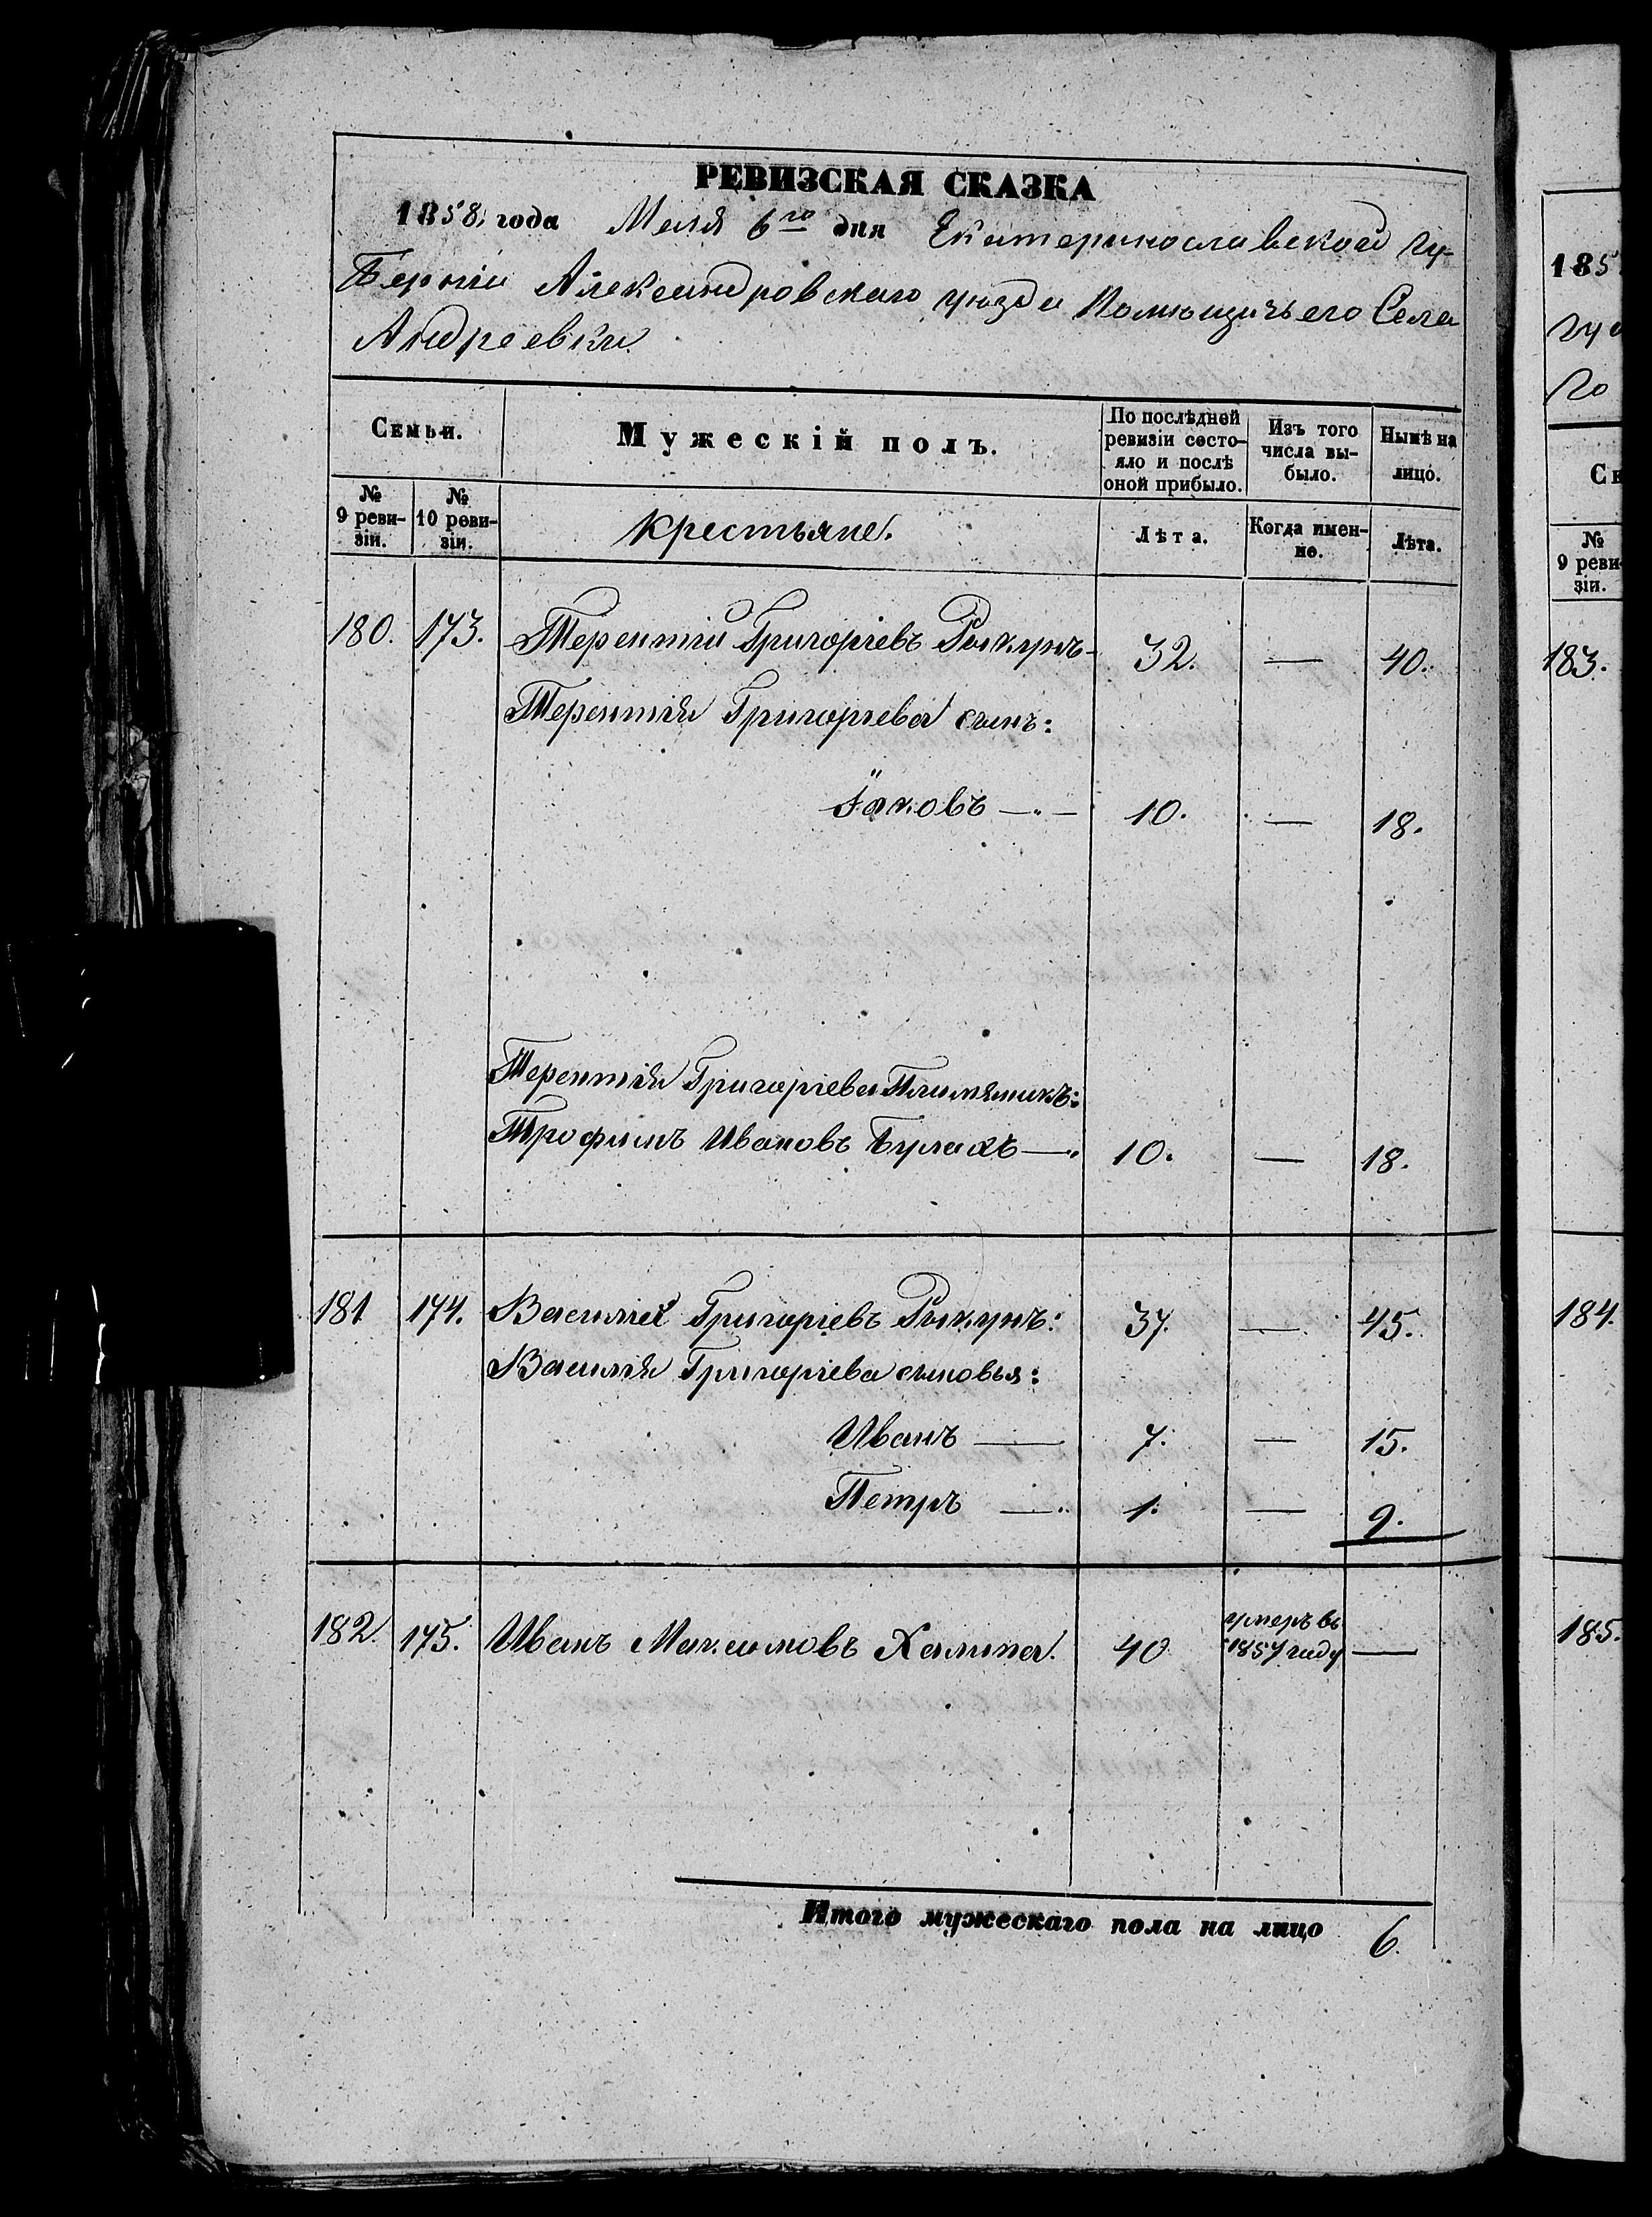 РЕВИЗСКАЯ СКАЗКА
1858 года Маія 6го дня Екатеринославской гу-
Берніи Александровскаго уѣзда Помѣщичьего Села
Андреевки.
Семьи.
Мужескій полъ.
По послѣдней ревизіи состо-яло и послѣ оной прибыло.
Изъ того числа вы-было.
Нынѣ на лицо.
№ 9 реви-зіи.
№ 10 реви-зіи.
Крестьяне.
Лѣта.
Когда имен-но.
Лѣта.
180. 173. Терентій Григоріевъ Рыкунъ 32. — 40.
Терентія Григоріева сынъ:
Яковъ — 10. — 18.
Терентія Григоріева Племяникъ:
Трофимъ Ивановъ Бурлахъ — 10. — 18.
181 174. Василій Григоріевъ Рыкунъ: 37. — 45.
Василія Григоріева сыновья:
Иванъ — 7. — 15.
Петръ — 1. — 9.
182. 175. Иванъ Максимовъ Халипа. 40 умеръ въ 1857 году —
Итого мужескаго пола на лицо 6.
185
гу
го
№
9 реви
зіи.
183.
184.
185.